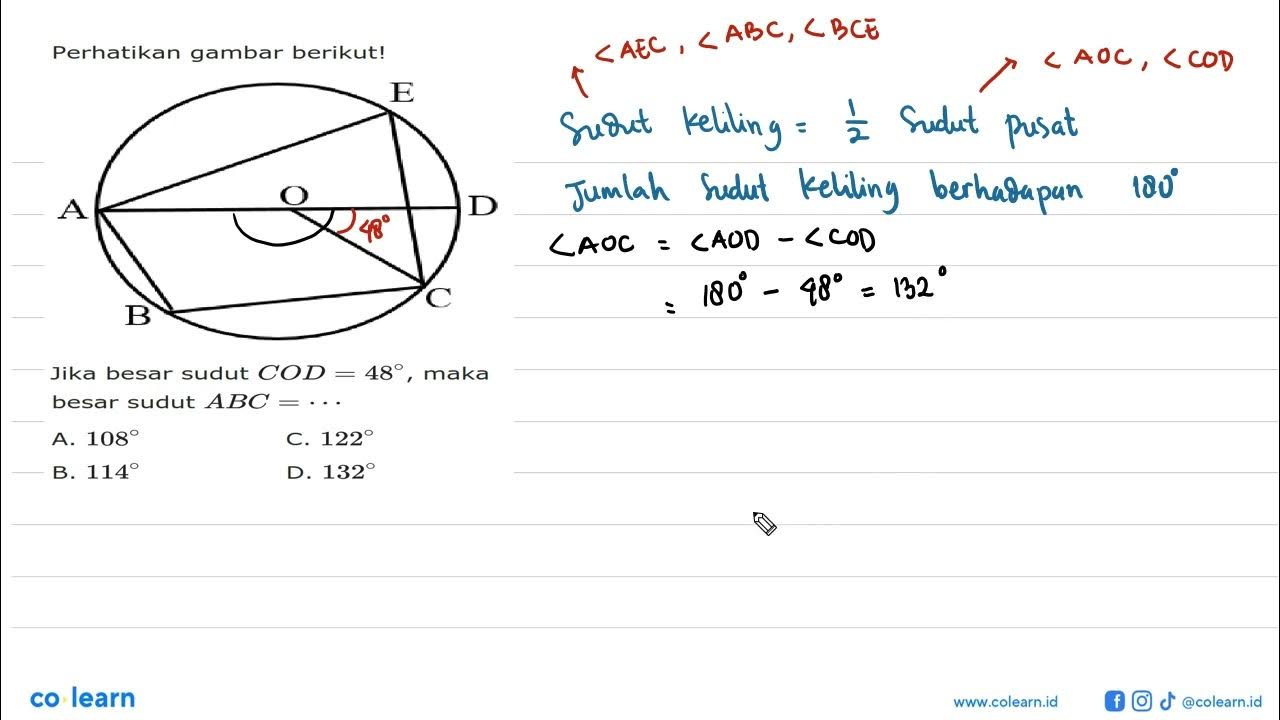 Perhatikan gambar berikut!
E
A
O
D
48°
B
C
Jika besar sudut COD = 48°, maka
besar sudut ABC = ⋯
A. 108°
C. 122°
B. 114°
D. 132°
∠AEC, ∠ABC, ∠BCE
∠AOC, ∠COD
Sudut keliling = 1/2 Sudut pusat
Jumlah Sudut keliling berhadapan 180°
∠AOC = ∠AOD - ∠COD
= 180° - 48° = 132°
co·learn
www.colearn.id
@colearn.id